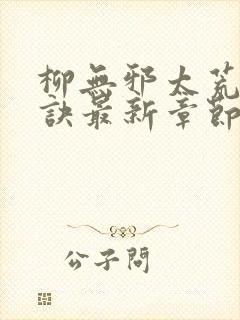 柳無邪太荒
訣最新章節
公子問